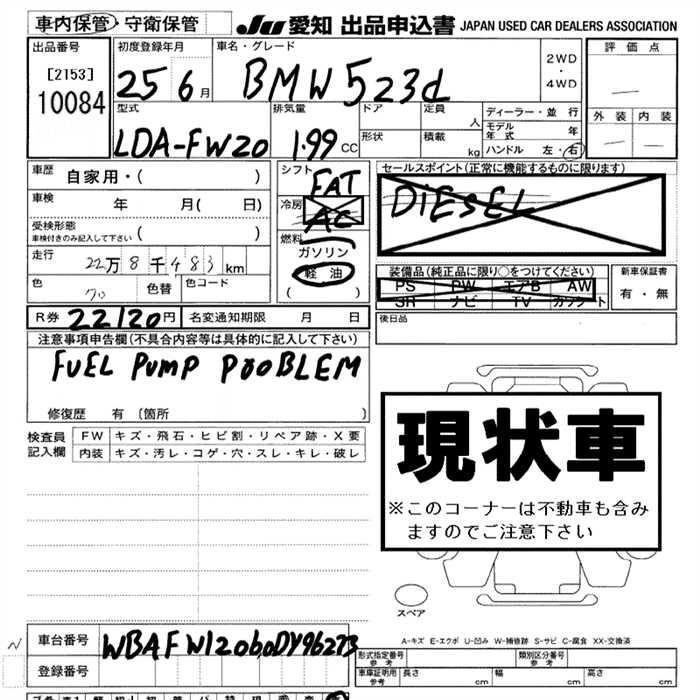 車内保管・守衛保管
JU 愛知 出品申込書 JAPAN USED CAR DEALERS ASSOCIATION
出品番号
[2153]
10084
初度登録年月
25 6 月
車名・グレード
BMW 523d
2WD
・
4WD
評価点
外装 内装
型式
LDA-FW20
排気量
1.99 CC
ドア
形状
定員
人
積載
kg
ディーラー・並行
モデル年式 年
ハンドル 左・右
車歴 自家用・( )
車検 年 月( 日)
受検形態
車検付きのみ記入して下さい ( )
走行 22万8千483km
色 色替 色コード
シフト
FAT
冷房
AC
燃料
ガソリン
軽油
( )
セールスポイント(正常に機能するものに限ります)
DiESEL
装備品(純正品に限り○をつけてください)
PS PW エアB AW
SR ナビ TV カワシート
新車保証書
有・無
R券 22120円 名変通知期限 月 日
後日品
注意事項申告欄(不具合内容等は具体的に記入して下さい)
FUEL PUMP PROBLEM
修復歴 有 〔箇所 〕
検査員記入欄
FW キズ・飛石・ヒビ割・リペア跡・X要
内装 キズ・汚レ・コゲ・穴・スレ・キレ・破レ
現状車
※このコーナーは不動車も含み
ますのでご注意下さい
スペア
A-キズ E-エクボ U-凹み W-補修跡 S-サビ C-腐食 XX-交換済
車台番号 WBAFW12060DY96273
登録番号
形式指定番号 参考
類別区分番号 参考
車庫証明用 参考 長さ cm 幅 cm 高さ cm